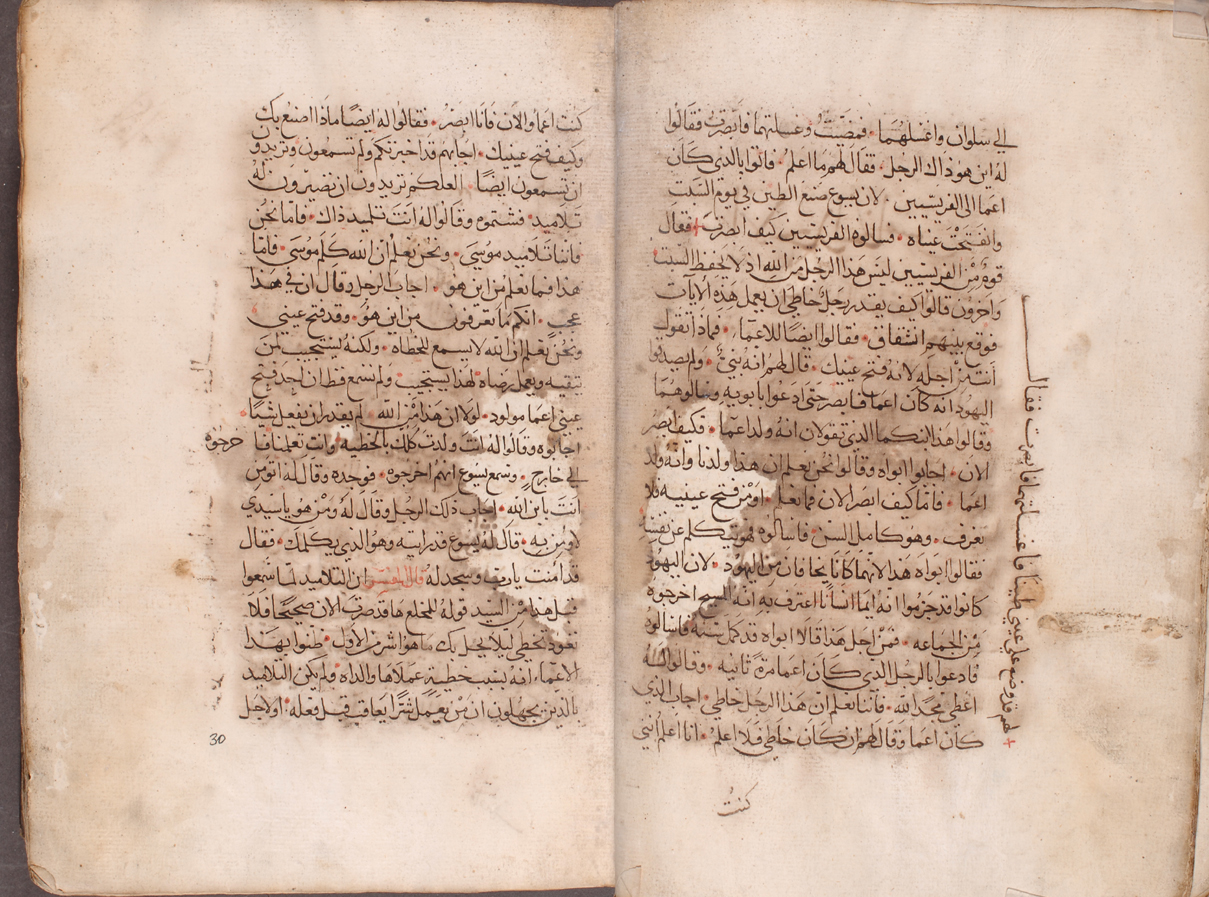 الي سلوان واغسلهما فمضيت وغسلتهما فابصرت فقالوا
له اين هو ذاك الرجل فقال لهم ما اعلم فاتوا بالذي كان
اعما الى الفريسيين لان يسوع صنع الطين في يوم السبت
وانفتحت عيناه فسالوه الفريسيين كيف ابصرت + فقال
قوم من الفريسيين ليس هذا الرجل من الله اذ لا يحفظ السبت
واخرون قالوا كيف يقدر رجل خاطي ان يعمل هذه الايات
فوقع بينهم انشقاق فقالوا ايضا للاعما فماذا تقول
انت من اجله لانه فتح عينيك قال لهم انه نبي ولم يصدقوا
اليهود انه كان اعما فابصر حتى ادعوا بابويه وسالوهما
وقالوا هذا ابنكما الذي تقولان انه ولد اعما فكيف ابصر
الان اجابوا ابواه وقالوا نحن نعلم ان هذا ولدنا وانه ولد
اعما فاما كيف ابصر الان فما نعلم او من فتح عينيه فلا
نعرف وهو كامل السن فاسالوه فهو يتكلم عن نفسه
فقالوا ابواه هذا لانهما كانا يخافان من اليهود لان اليهود
كانوا قد جزموا انه ايما انسانا اعترف به انه المسيح اخرجوه
من الجماعه فمن اجل هذا قالا ابواه قد كمل سنه فاسالوه
فادعوا بالرجل الذي كان اعما مرة ثانيه وقالوا له
اعطي مجدا لله فاننا نعلم ان هذا الرجل خاطي اجاب الذي
كان اعما وقال لهم ان كان خاطي فلا اعلم انا اعلم انني
كنت
+ لهم قد وضع على عيني طينا فاغسلتهما فابصرت فقال
كنت اعما والان فانا ابصر فقالوا له ايضا ماذا اصنع بك
وكيف فتح عينيك اجابهم قد اخبرتكم ولم تسمعون وتريدون
ان تسمعون ايضا العلكم تريدون ان تصيرون له
تلاميد فشتموه وقالوا له انت تلميد ذاك فاما نحن
فاننا تلاميد موسى ونحن نعلم ان الله كلم موسى فاما
هذا فما نعلم من اين هو اجاب الرجل وقال ان في هذا
عجب انكم ما تعرفون من اين هو وقد فتح عيني
ونحن نعلم ان الله لا يسمع للخطاه ولكنه يستجيب لمن
يتقيه ويعمل رضاه لهذا يستجيب ولم نسمع قط ان احد فتح
عيني اعما مولود لولا ان هذا من الله لم يقدر ان يفعل شيا
اجابوه وقالوا له انت ولدت كلك بالخطيه وانت تعلمنا فا
خرجوه
الي خارج وسمع يسوع انهم اخرجوه فوجده وقال له اتومن
انت بابن الله اجاب ذلك الرجل وقال له ومن هو يا سيدي
لاومن به قال له يسوع قد رايته وهو الذي يكلمك فقال
قد امنت يا رب وسجد له قال المفسر ان التلاميد لما سمعوا
قبل هذا من السيد قوله للمخلع ها قد صرت الان صحيحا فلا
تعود تخطي ليلا يحل بك ما هو اشر من الاول ظنوا بهذا
الاعما انه بسبب خطية عملاها والداه ولم يكن التلاميد
بالذين يجهلون ان من يعمل شرا يعاقب قبل فعله او لاجل
30